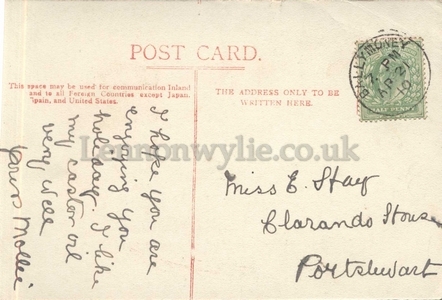 POST CARD.
This space may be used for communication Inland
and to all Foreign Countries except Japan,
Spain, and United States.
THE ADDRESS ONLY TO BE
WRITTEN HERE.
BALLYMONEY
7 PM
AP 2
10
Lennonwylie.co.uk
I hope you are
enjoying you
holiday. I like
my castor oil
very well
yours Mollie
Miss E. Hay
Clarando House
Portstewart